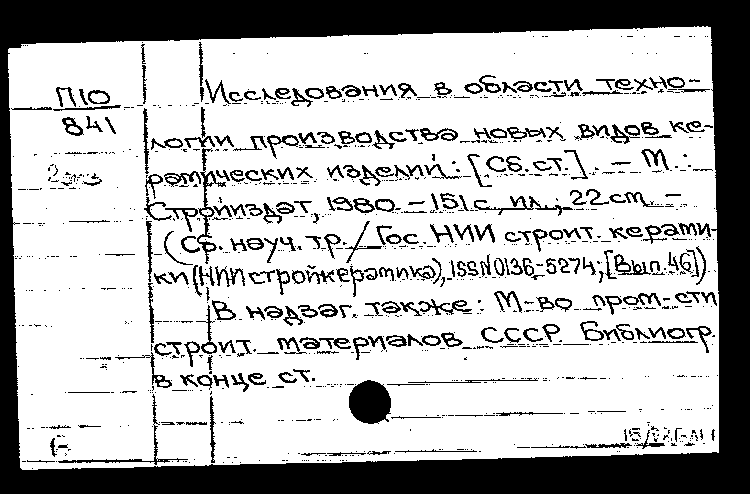 П10
841
2 экз
Исследования в области техно-
логии производства новых видов ке-
рамических изделий: [Сб. ст.]. – М.:
Стройиздат, 1980 – 151 с., ил.; 22 см. –
(Сб. науч. тр. / Гос. НИИ строит. керами-
ки (НИИстройкерамика), ISSN 0136-5274; [Вып. 46])
В надзаг. также: М-во пром-сти
строит. материалов СССР. Библиогр.
в конце ст.